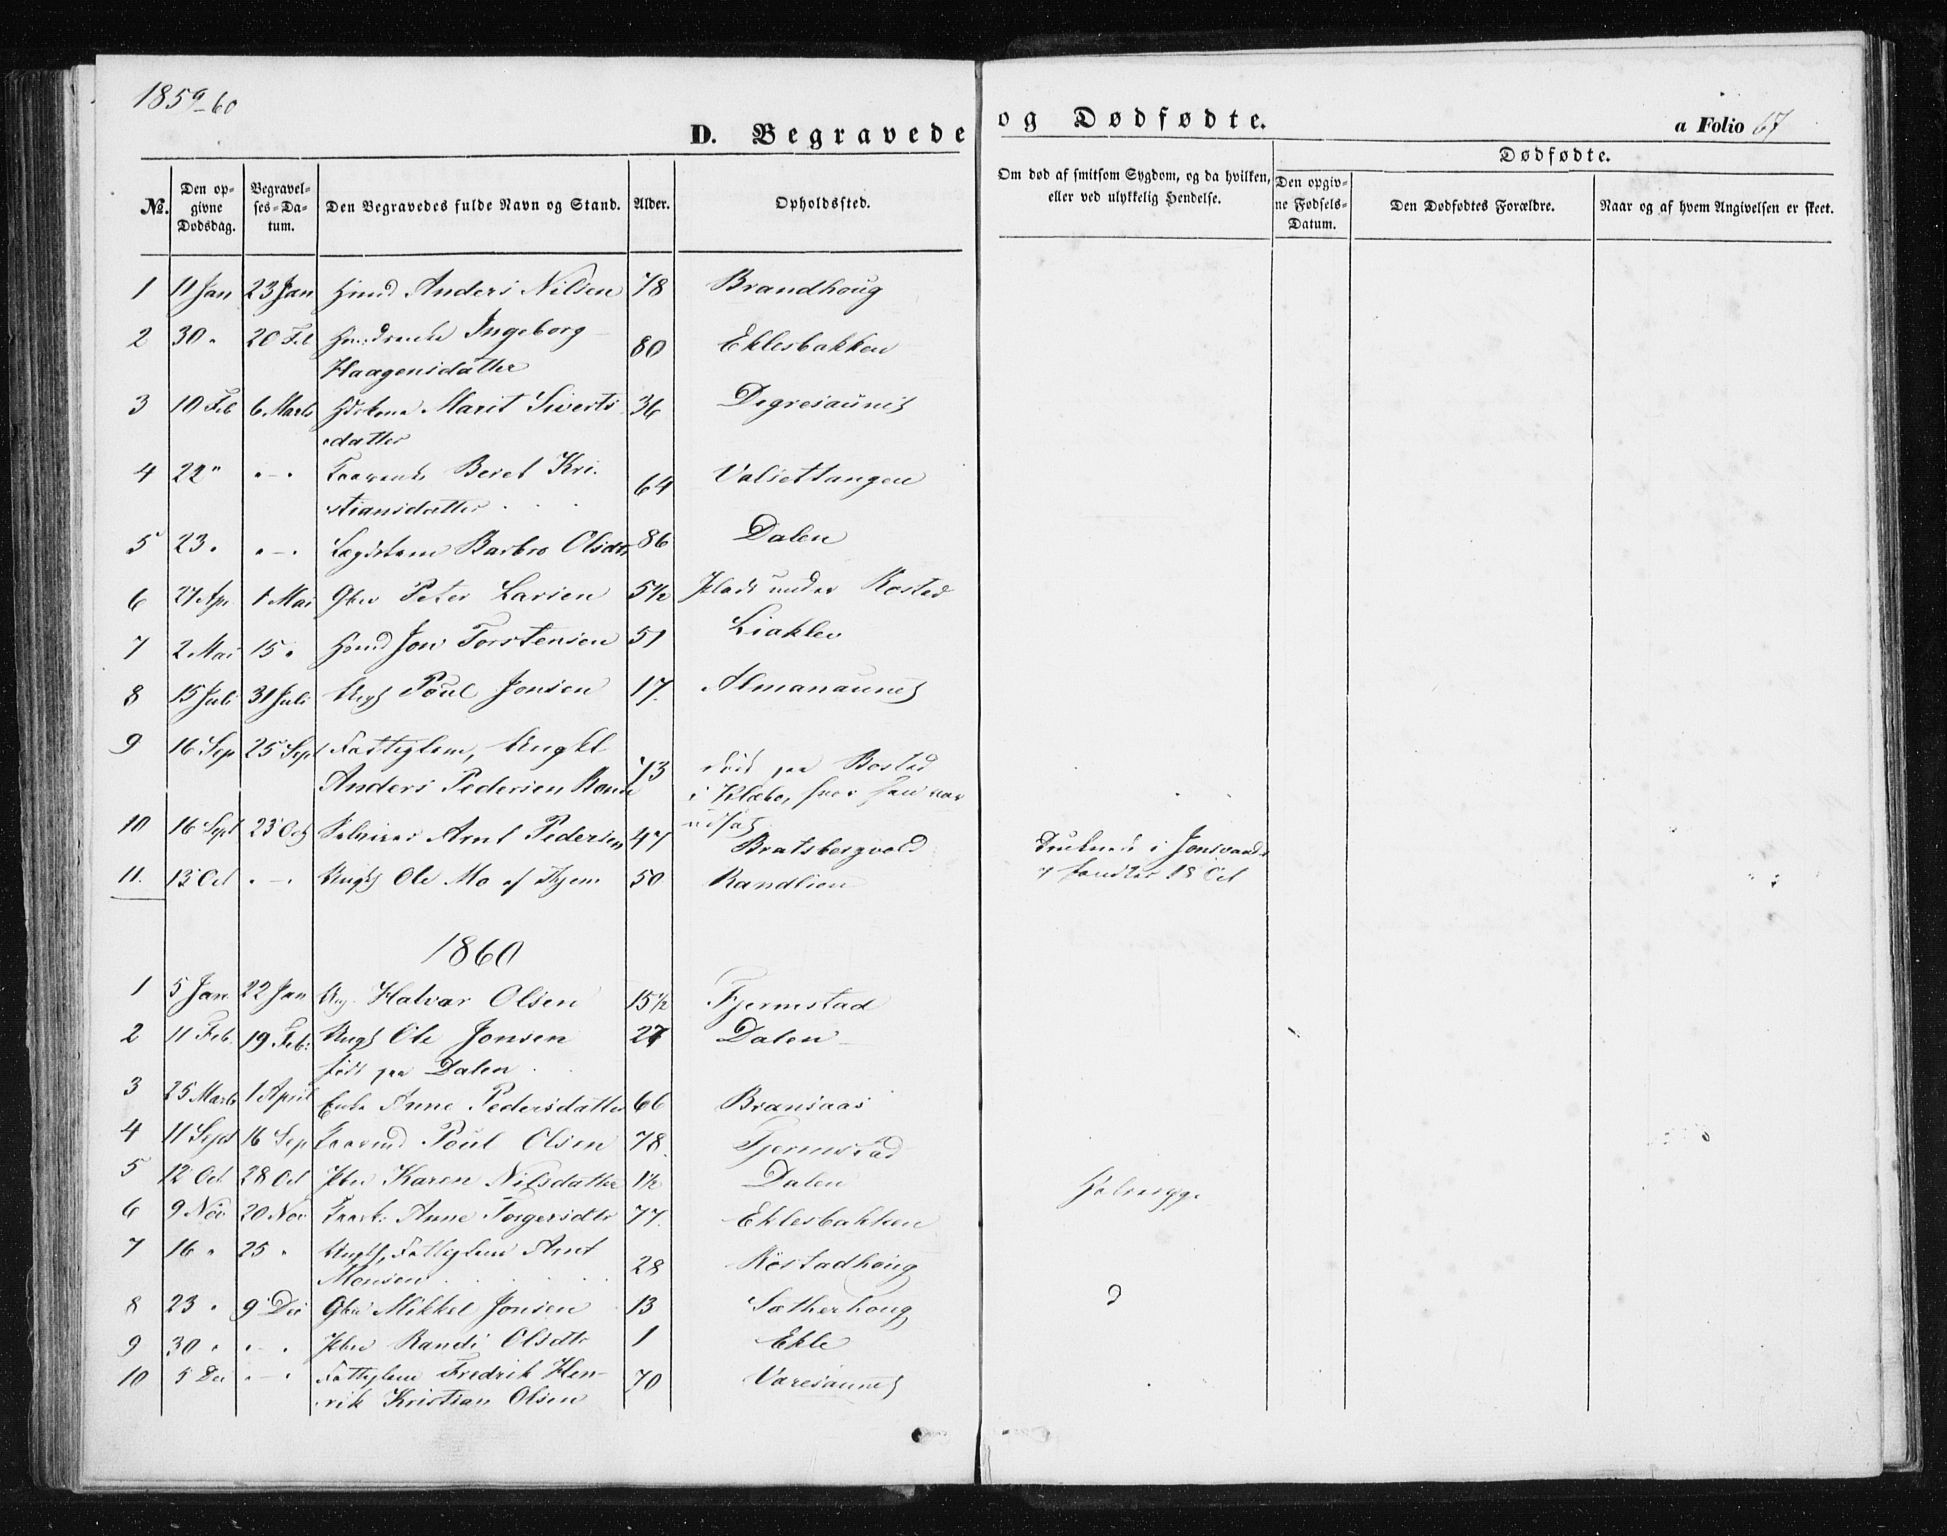 1859-60
D. Begravede og Dødfødte.
a Folio 67
No. Den opgivne Dødsdag. Begravelses-Datum. Den Begravedes fulde Navn og Stand. Alder. Opholdssted. Om død af smitsom Sygdom, og da hvilken, eller ved ulykkelig Hendelse. Dødfødte. Den opgivne Fødsels-Datum. Den Dødfødtes Forældre. Naar og af hvem Angivelsen er skeet.
1 11 Jan 23 Jan Hmd Anders Nilsen 78 Brandhoug
2 30 " 20 Feb Ingeborg
Haagensdatter 80 Eklesbakken
3 10 Feb 6 Marts Marit Siverts
datter 36 Degresaunet
4 22 " " - " Beret Kri-
stiansdatter 64 Valsettangen
5 23 " " - " Lægdslem Barbro Olsdtr 86 Dalen
6 27 Ap 1 Mai Gbrn Peter Larsen 5½ Plads under Rosted
7 2 Mai 15 " Hmd Jon Torstensen 51 Liaklev
8 15 Juli 31 Juli Ungk Poul Jonsen 17 Almanaunet
9 16 Sep 25 Sept Fattiglem, Ungkl
Anders Pedersen 73 død paa Bosted
i Klæbo, hvor han var
udsat
10 16 Sept 23 Oct Selveier Arnt Pedersen 47 Bratsbergvold Druknede i Jonsvandet
11. 13 Oct " - " Ungk Ole Mo af 50 Randlien funden 18 Oct
1860
1 5 Jan 22 Jan Ung. Halvor Olsen 15½ Fjermstad
2 11 Feb. 19 Feb: Ungk Ole Jonsen 27 Dalen
født paa Dalen
3 25 Marts 1 April Enke Anne Pedersdatter 66 Bransaas
4 11 Sept 16 Sep Poul Olsen 78 Fjermstad
5 12 Oct 28 Oct Pbrn Karen Nilsdatter 1½ Dalen Halsesyge
6 9 Nov 20 Nov Anne Torgersdtr 77 Eklesbakken
7 16 " 25 " Ungk, Fattiglem Arnt
Monsen 28 Röstadhoug
8 23 " 9 Dec Gbrn Mikkel Jonsen 13 Sætherhoug
9 30 " " - " Pbrn Randi Olsdtr 1 Ekle
10 5 Dec " - " Fattiglem Fredrik Hen-
rik Kristian Olsen 70 Varesaunet